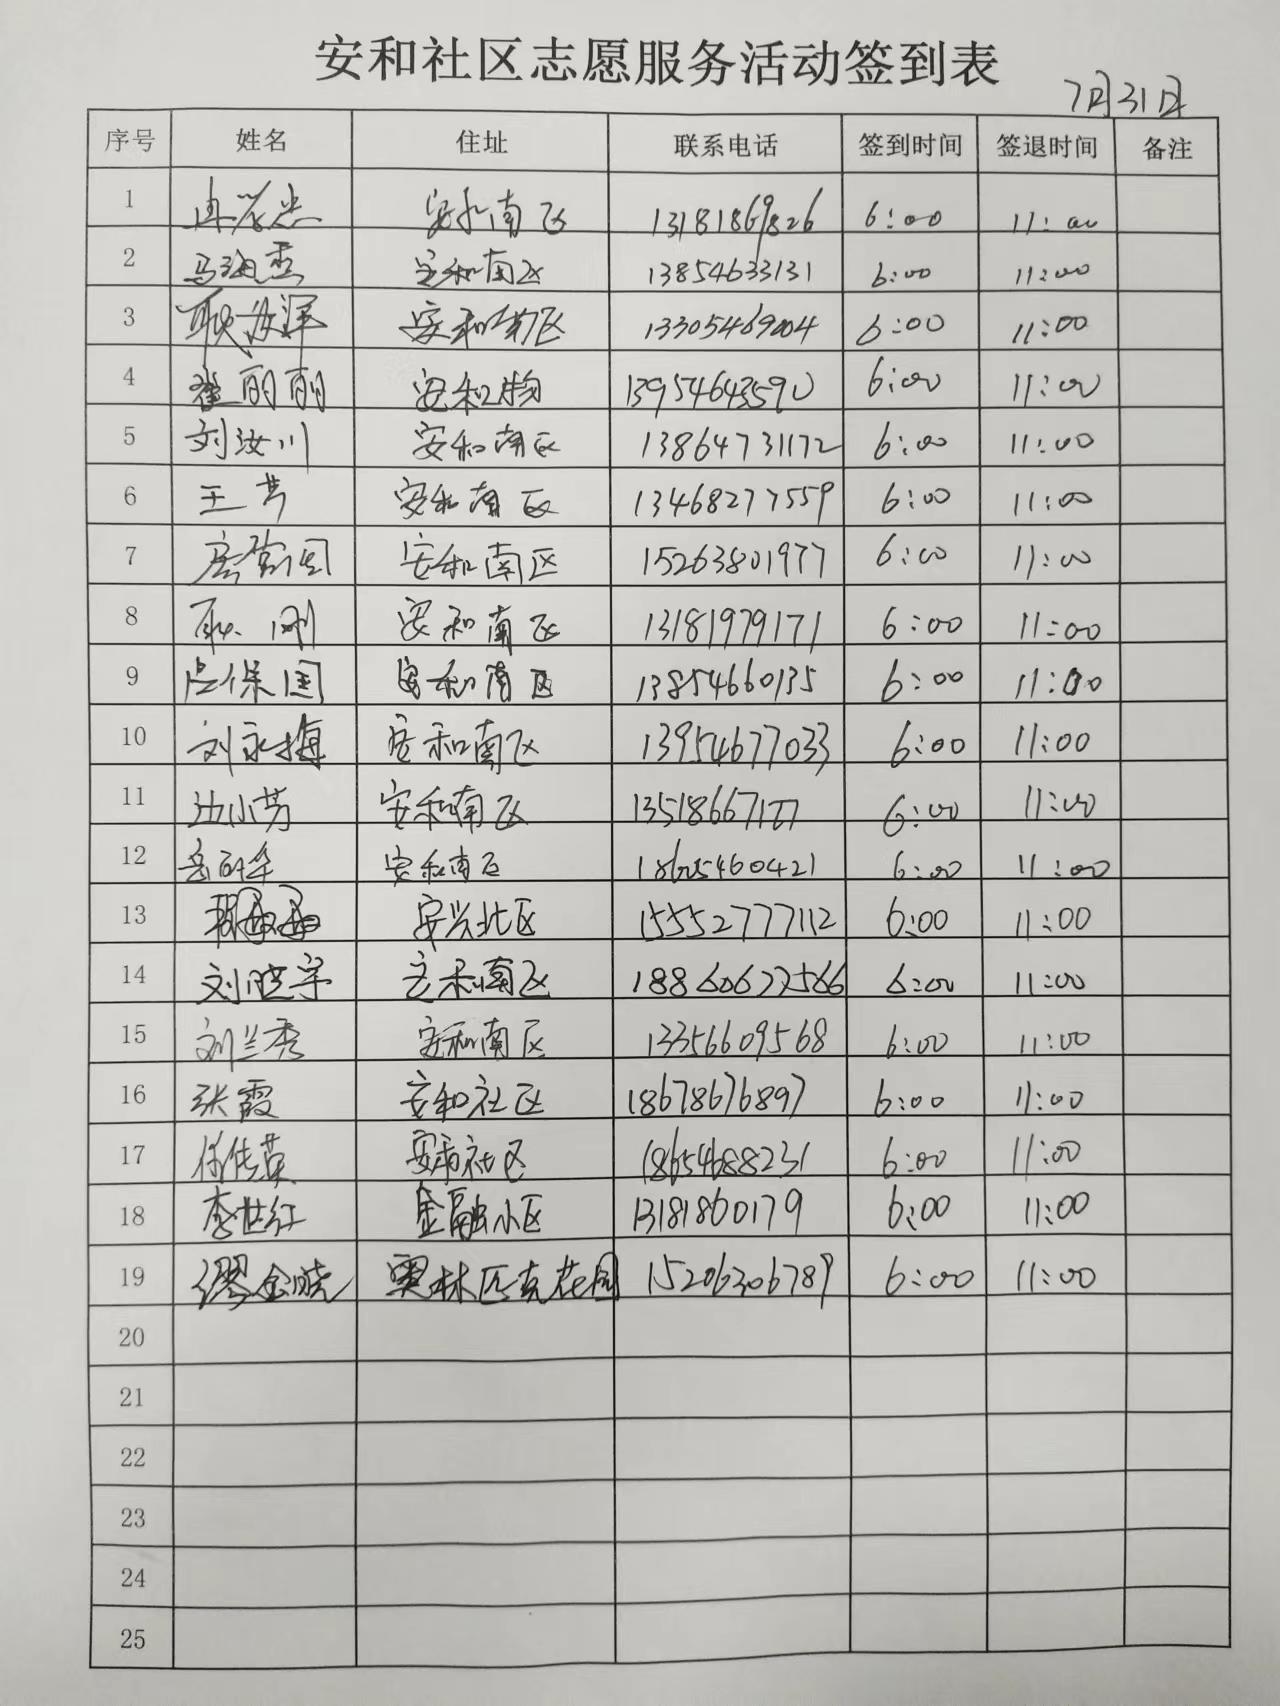 安和社区志愿服务活动签到表
7月31日
序号 姓名 住址 联系电话 签到时间 签退时间 备注
1 安和南区 13181869826 6:00 11:00
2 马海燕 安和南区 13854633131 6:00 11:00
3 安和南区 13305469004 6:00 11:00
4 翟丽丽 安和物 13954643590 6:00 11:00
5 刘汝川 安和南区 13864731172 6:00 11:00
6 王芳 安和南区 13468277559 6:00 11:00
7 安和南区 15263801977 6:00 11:00
8 耿刚 安和南区 13181979171 6:00 11:00
9 保国 安和南区 13854660135 6:00 11:00
10 刘永梅 安和南区 13954677033 6:00 11:00
11 边小芳 安和南区 6:00 11:00
12 安和南区 18605460421 6:00 11:00
13 安兴北区 15552777112 6:00 11:00
14 刘晓宇 安和南区 18860677566 6:00 11:00
15 刘兰秀 安和南区 13356609568 6:00 11:00
16 张霞 安和社区 18678676897 6:00 11:00
17 徐传英 安和社区 18654688231 6:00 11:00
18 李世红 金融小区 13181860179 6:00 11:00
19 缪金晓 奥林匹克花园 15206306789 6:00 11:00
20
21
22
23
24
25